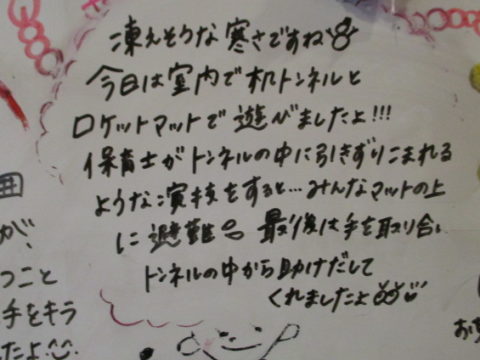 凍えそうな寒さですね
今日は室内で机トンネルと
ロケットマットで遊びましたよ!!!
保育士がトンネルの中に引きずりこまれる
ような演技をすると…みんなマットの上
に避難 最後は手を取り合い
トンネルの中から助けだして
くれましたよ
囲
が、
つこと
手をキラ
たよ